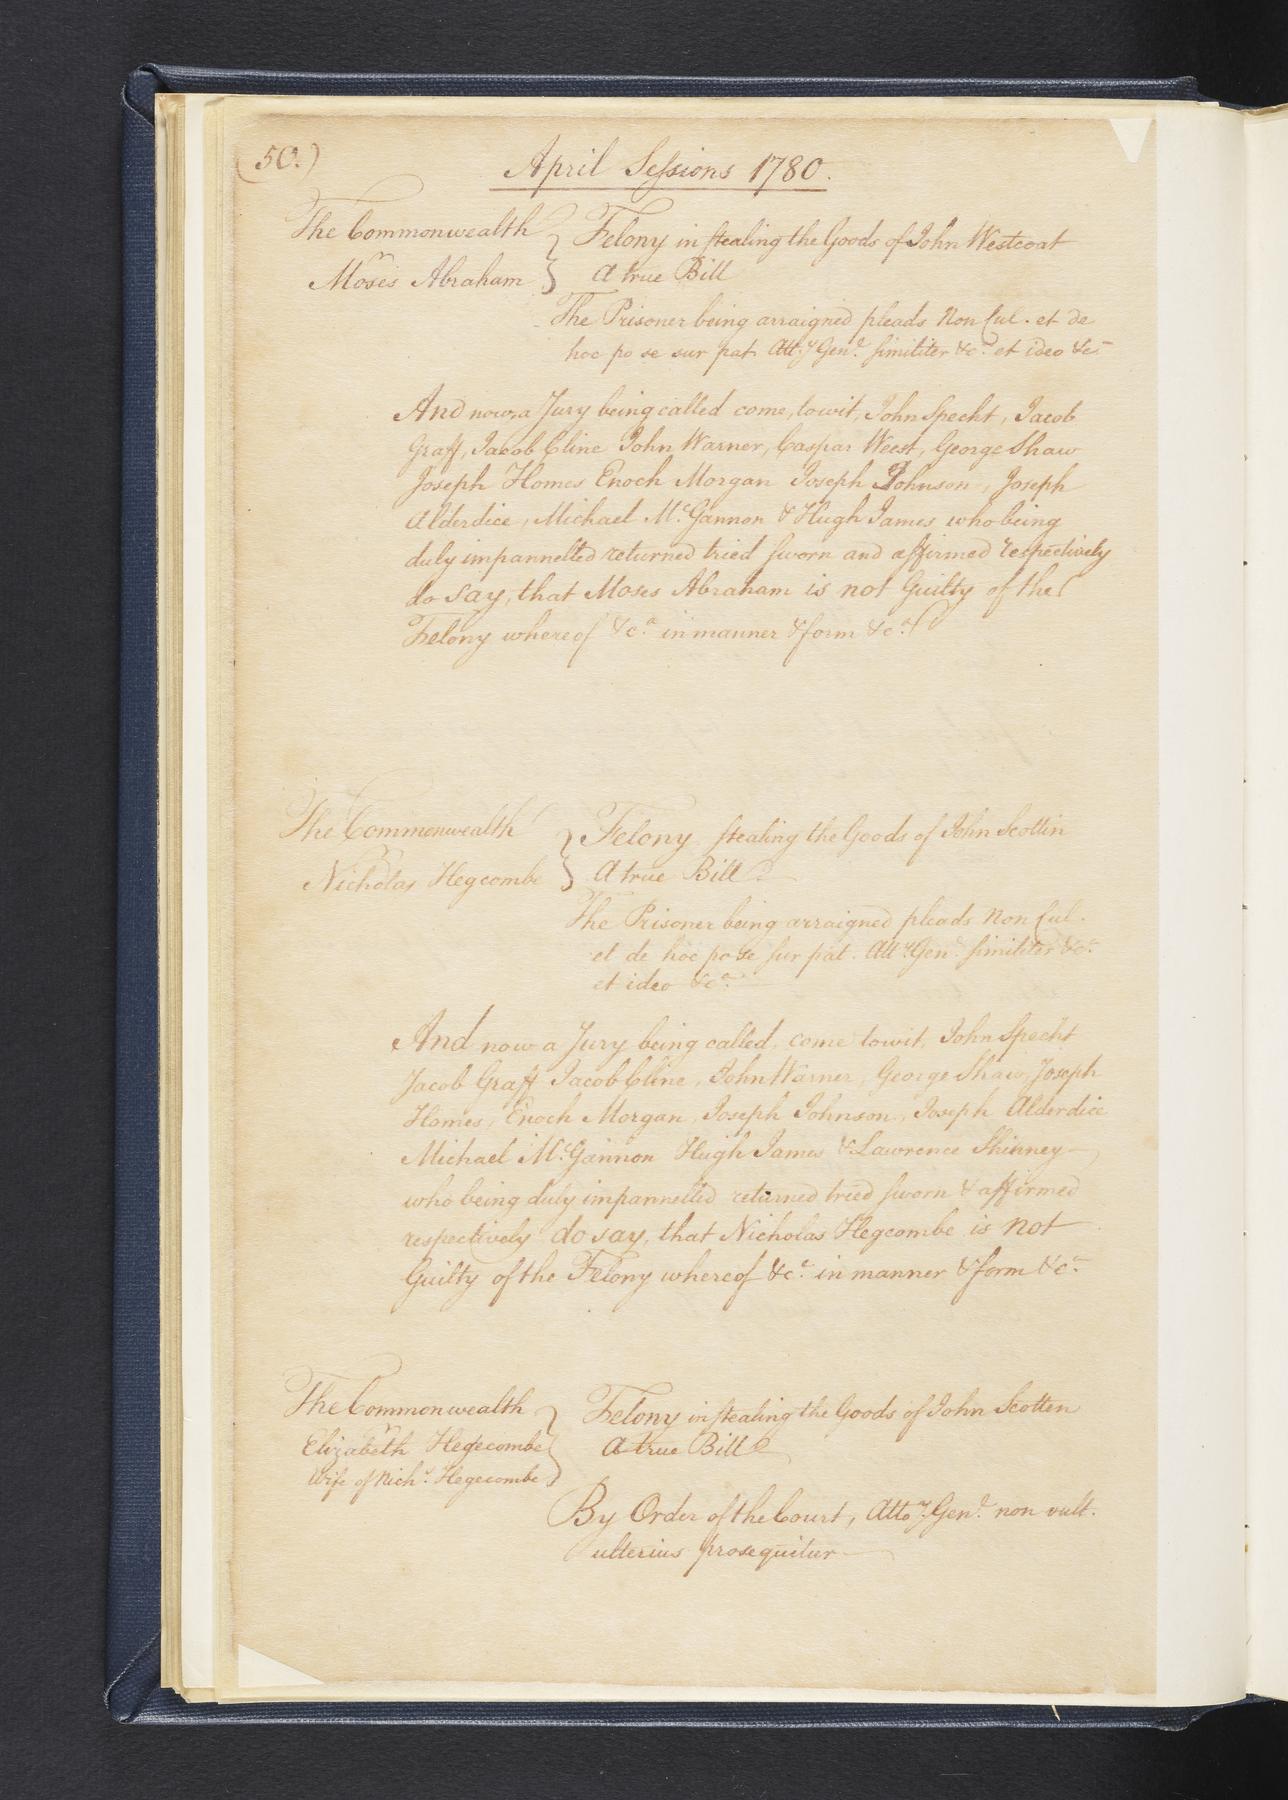 50.)
April Sessions 1780.
The Commonwealth
vs
Moses Abraham
Felony in stealing the Goods of John Westcoat
A true Bill
The Prisoner being arraigned pleads Non Cul. et de
hoc po se sur pat. Atty Genl. similiter &ca. et ideo &ca
And now, a Jury being called come, towit, John Specht, Jacob
Graff, Jacob Cline John Warner, Caspar Weest, George Shaw
Joseph Homes Enoch Morgan Joseph Johnson, Joseph
Alderdice, Michael McGannon & Hugh James who being
duly impannelled returned tried sworn and affirmed respectively
do say, that Moses Abraham is not Guilty of the
Felony whereof &ca. in manner & form &ca.
The Commonwealth
vs
Nicholas Hegcombe
Felony stealing the Goods of John Scottin
A true Bill
The Prisoner being arraigned pleads Non Cul.
et de hoc po se sur pat. Atty. Genl. similiter &ca.
et ideo &ca.
And now a Jury being called, come towit, John Specht
Jacob Graff Jacob Cline, John Warner, George Shaw, Joseph
Homes, Enoch Morgan, Joseph Johnson, Joseph Alderdice
Michael McGannon Hugh James & Lawrence Shinney
who being duly impannelled returned tried sworn & affirmed
respectively do say, that Nicholas Hegcombe is not
Guilty of the Felony whereof &ca. in manner & form &ca.
The Commonwealth
vs
Elizabeth Hegecombe
Wife of Nichs. Hegecombe
Felony in stealing the Goods of John Scotten
A true Bill
By Order of the Court, Atto'y. Genl. non vult.
ulterius prosequitur